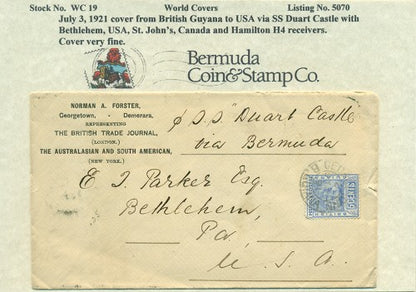 Stock No. WC 19 World Covers Listing No. 5070
July 3, 1921 cover from British Guyana to USA via SS Duart Castle with
Bethlehem, USA, St. John's, Canada and Hamilton H4 receivers.
Cover very fine.
Bermuda
Coin&Stamp Co.
NORMAN A. FORSTER,
Georgetown, - Demerara,
REPRESENTING
THE BRITISH TRADE JOURNAL,
(LONDON.)
THE AUSTRALASIAN AND SOUTH AMERICAN,
(NEW YORK.)
S.S. "Duart Castle
via Bermuda
E J. Parker Esq.
Bethlehem,
Pa,
U. S. A.
CENTS